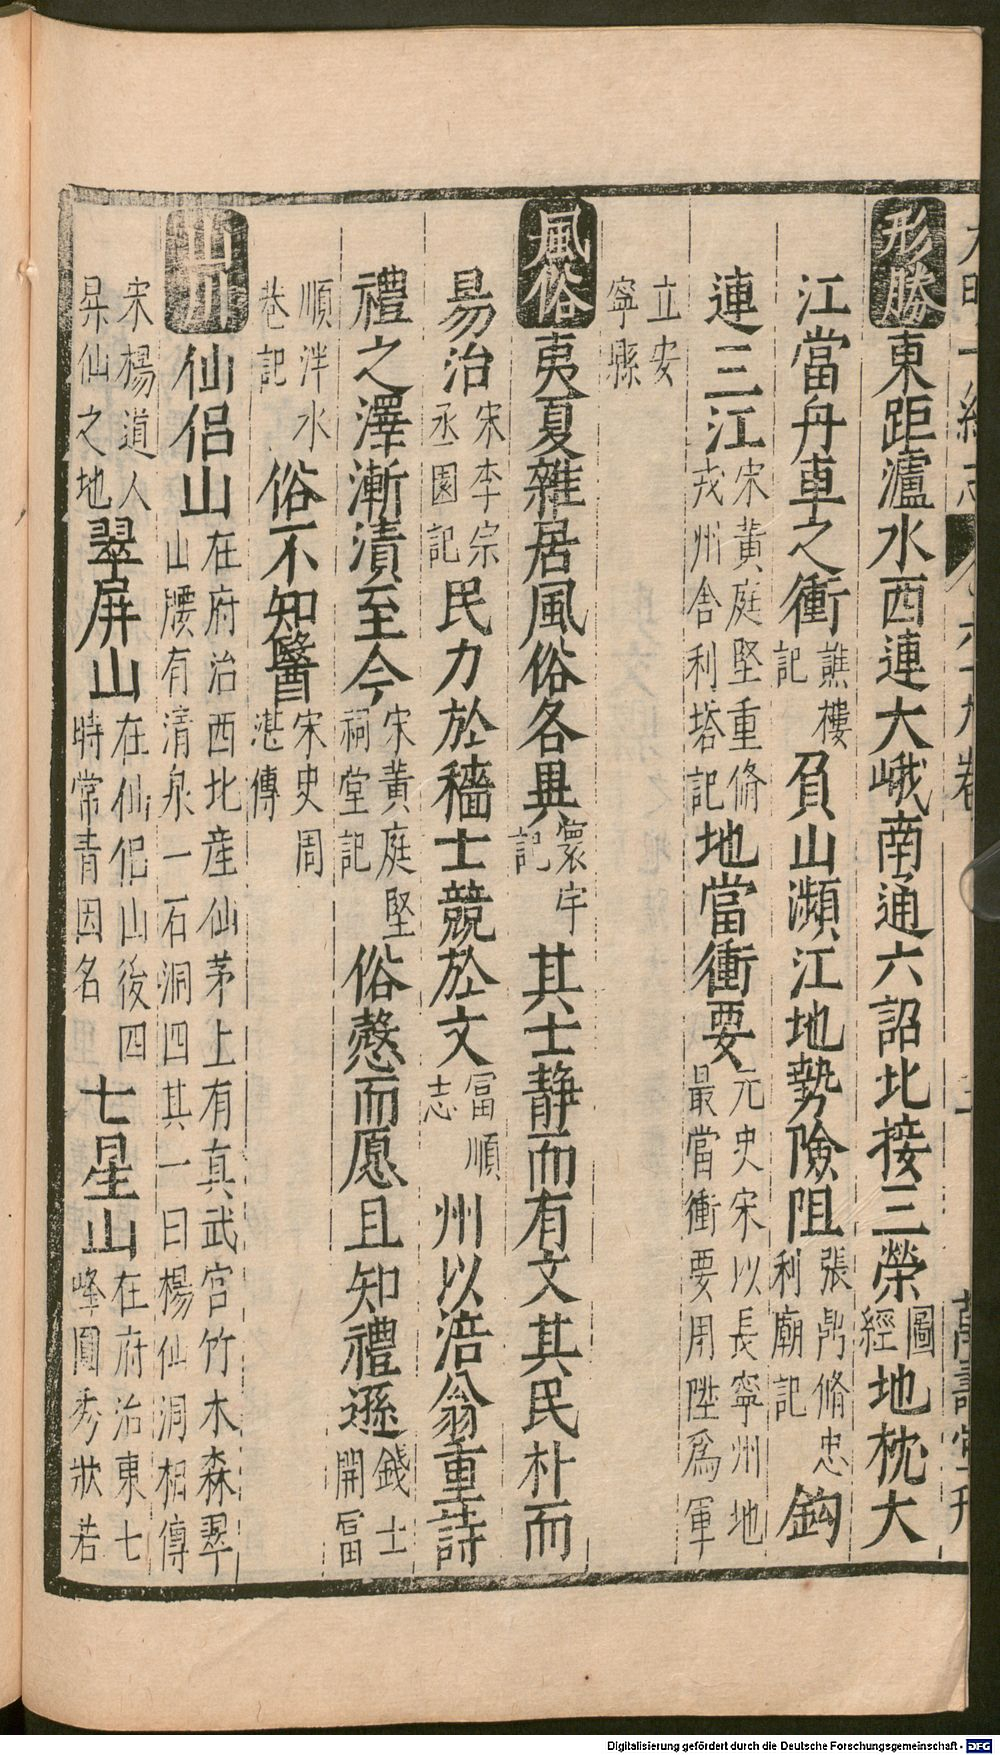 形勝東距瀘水西連大峨南通六詔北接三榮圖經地枕大
江當舟車之衝譙樓記負山瀕江地勢險阻張鼎脩忠利廟記鈎
連三江宋黃庭堅重脩戎州舍利塔記地當衝要元史宋以長寧州地最當衝要用陞爲軍
立安寧縣
風俗夷夏雜居風俗各異寰宇記其士静而有文其民朴而
易治宋李宗丞園記民力於穡士競於文冨順志州以涪翁重詩
禮之澤漸漬至今宋黃庭堅祠堂記俗愨而愿且知禮遜錢士開冨
順泮水巷記俗不知醫宋史周湛傳
山川仙侣山在府治西北産仙茅上有真武宫竹木森翠山腰有清泉一石洞四其一曰楊仙洞相傳
宋楊道人昇仙之地翠屏山在仙侣山後四時常青因名七星山在府治東七峰圓秀狀若
Digitalisierung gefördert durch die Deutsche Forschungsgemeinschaft - DFG